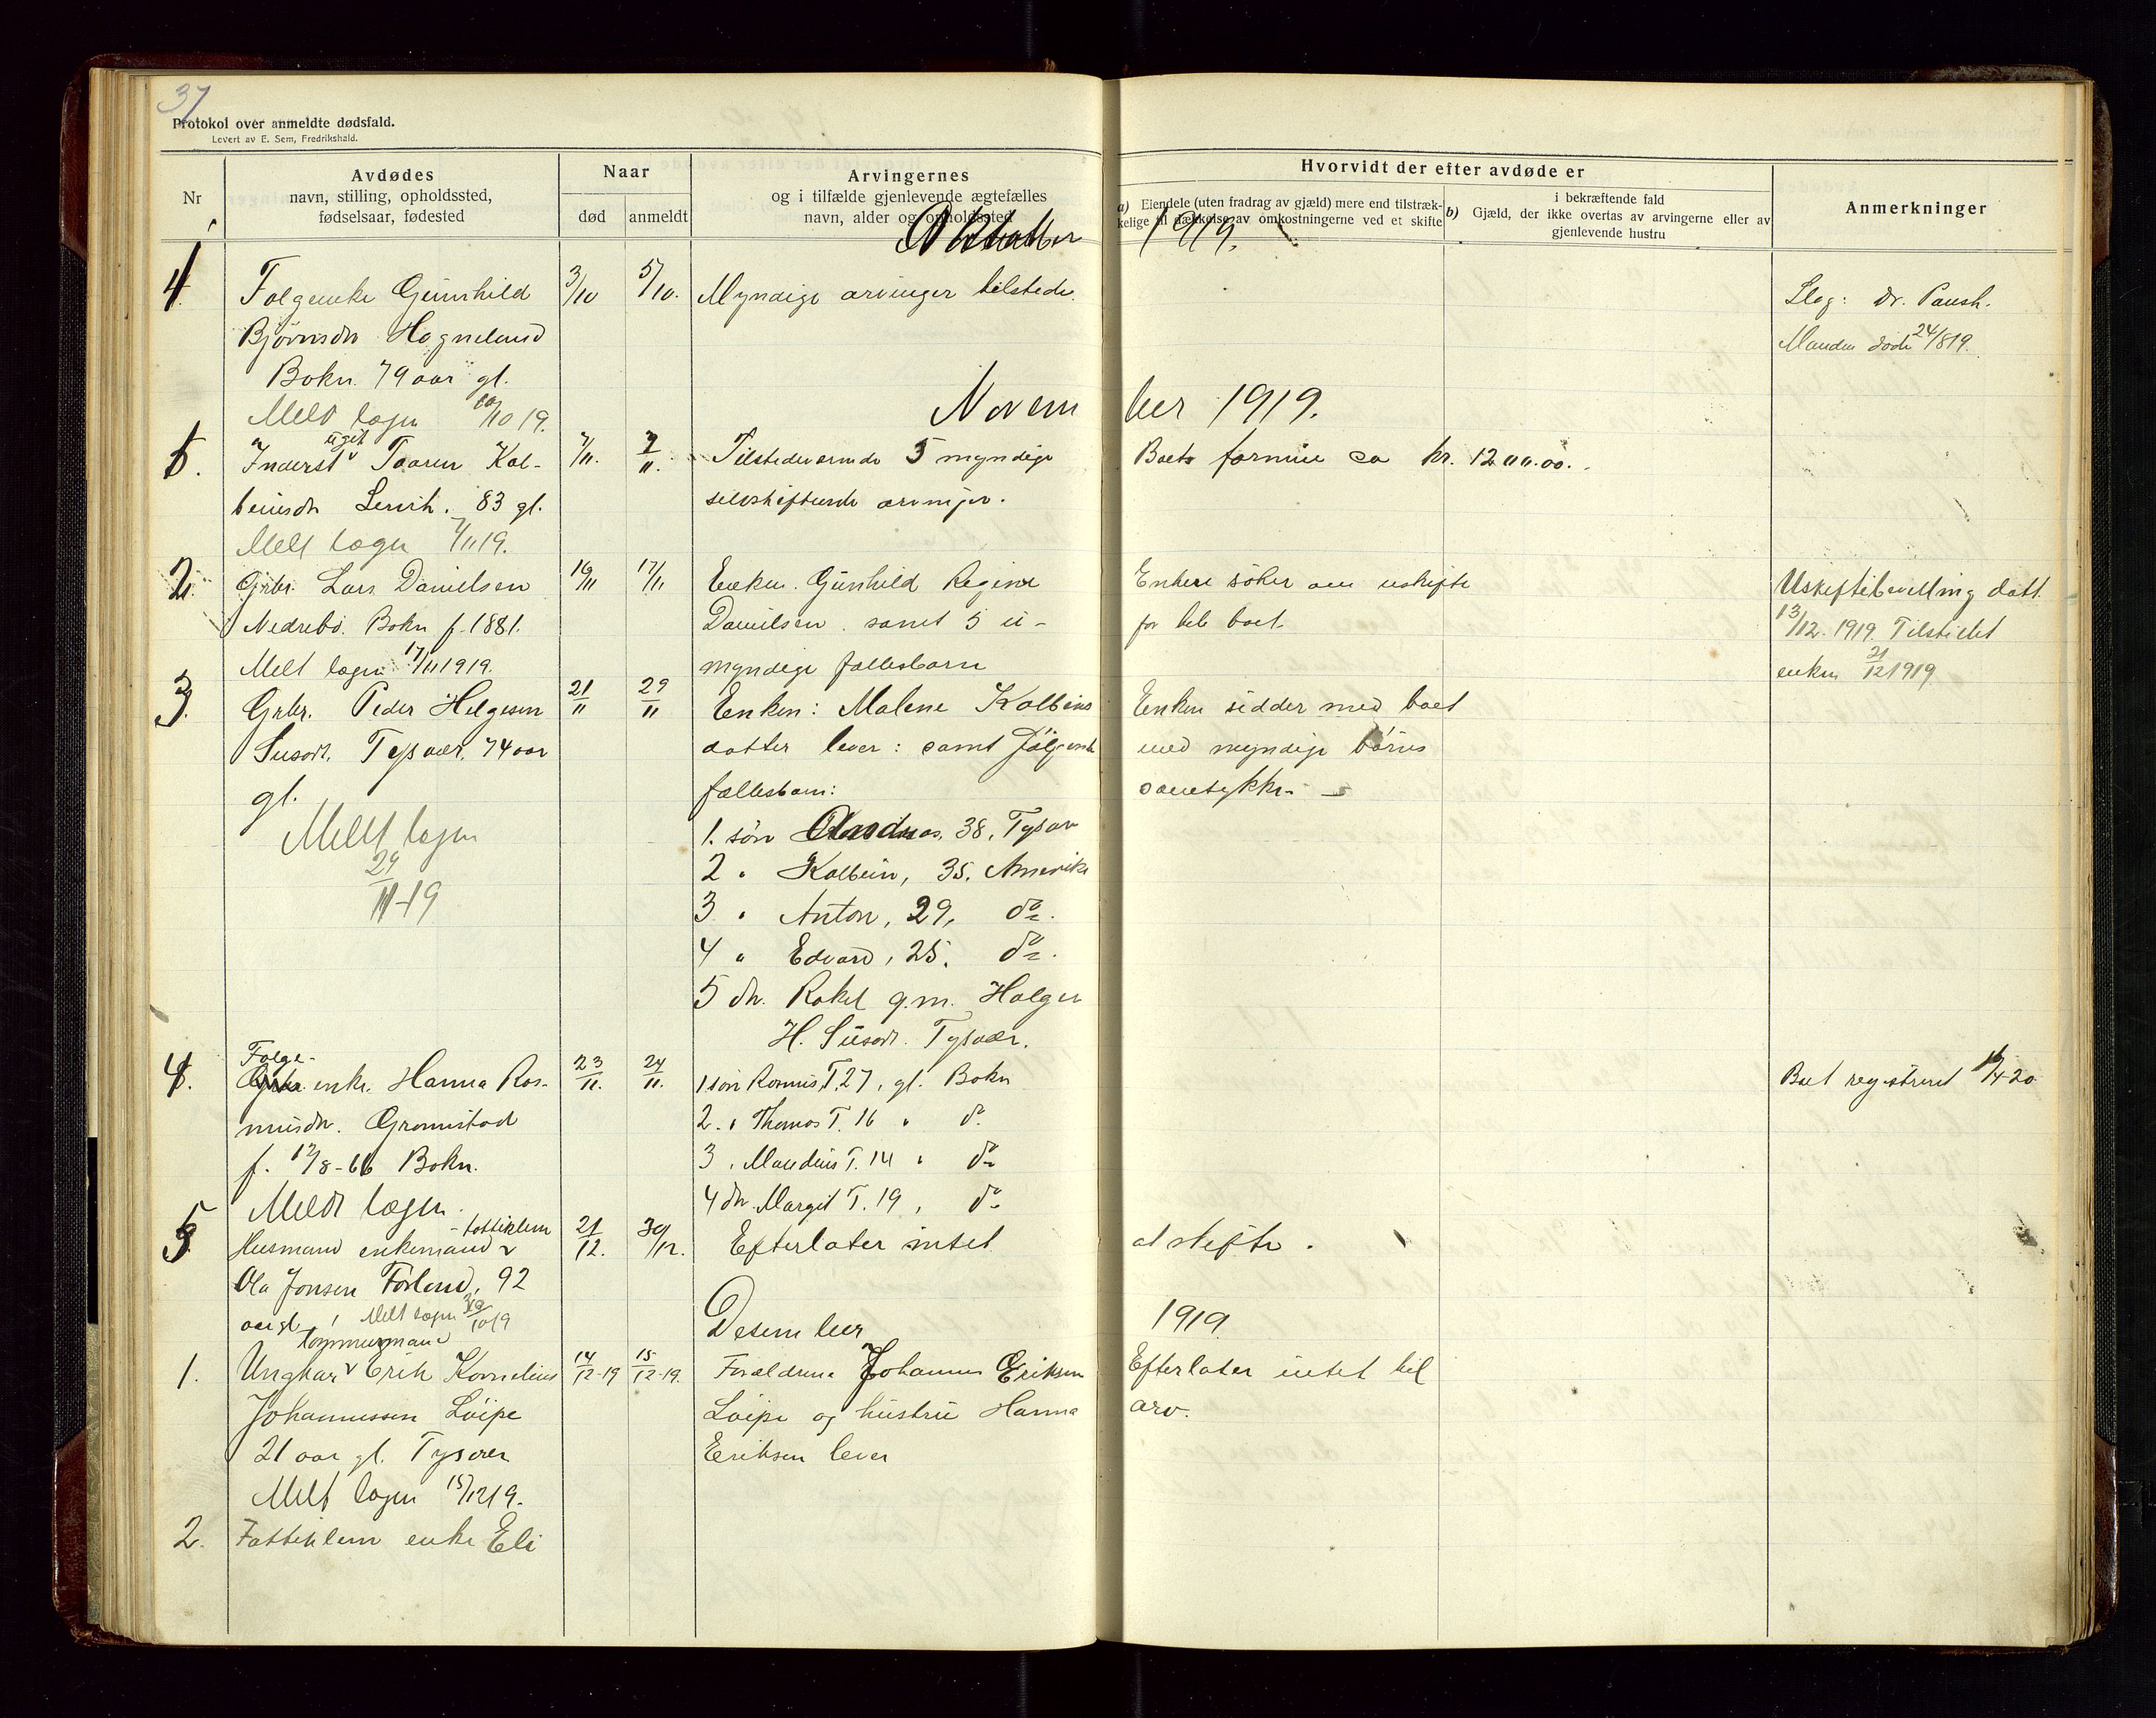 37
Protokol over anmeldte dødsfald.
Levert av E. Sem, Fredrikshald.
Nr
Avdødes
navn, stilling, opholdssted,
fødselsaar, fødested
Naar
død
anmeldt
Arvingernes
og i tilfælde gjenlevende ægtefælles
navn, alder og opholdssted
Hvorvidt der efter avdøde er
a) Eiendele (uten fradrag av gjæld) mere end tilstræk-
kelige til dækkelse av omkostningerne ved et skifte
i bekræftende fald
b) Gjæld, der ikke overtas av arvingerne eller av
gjenlevende hustru
Anmerkninger
Oktober 1919.
4 Folgeenke Gunhild 3/10 5/10. Myndige arvinger tilstede.
Bjørnsdr Hogneland
Bokn. 79 aar gl.
Meld lagen 10/10 19.
Manden døde 24/8 19.
November 1919.
1. Inderst ugift Taaren Kol- 7/11. 7/11. Tilstedeværende 5 myndige Boets formue ca kr. 1200.00.
beinsdr Lervik. 83 gl. selvskiftende arvinger.
Melt lagen 7/11 19.
2. Grbr. Lars Danielsen 16/11 17/11 Enken Gunhild Regine Enken søker om uskifte Uskiftebevilling datt.
Nedrebø. Bokn f. 1881. Danielsen samt 5 u- for hele boet. 13/12. 1919. Tilstillet
Melt lagen 17/11 1919. myndige fællesbarn enken 21/12 1919
3. Grbr. Peder Helgesen 21/11 29/11 Enken: Malene Kolbeins Enken sidder med boet
Susort. Tysvær, 74 aar datter lever: samt følgende med myndige børns
gl. fællesbarn: samtykke.
Meldt lagen
29/11-19
1. søn Andreas, 38, Tysvær
2 " Kolbein, 35. Amerika
3 " Anton, 29, do.
4 " Edvard, 25. do.
5 dr. Rakel g.m. Holger
H. Susort. Tysvær.
4. Folge- enke. Hanna Ras- 23/11. 24/11. 1 søn Rasmus T. 27, gl. Bokn Boet registreret /4-20
musdr. Grønnestad 2. " Thomas T. 16 " do.
f. 12/8-66 Bokn. 3 " Maudius T. 14 " do
Meldt lagen. 4 dr. Margit T. 19 , do
5 Husmand enkemand fattiklem 21/12. 30/12. Efterlater intet at skifte.
Ola Jonsen Førland, 92
aar gl. Melt lagen
Desember 1919
1. Ungkar tømmermand Erik Kornelius 14/12-19 15/12-19. Foreldrene Johannes Eriksen Efterlater intet til
Johannessen Løipe Løipe og hustru Hanna arv.
21 aar gl. Tysvær Eriksen lever
Melt lagen 15/12 19.
2. Fattiklem enke Eli